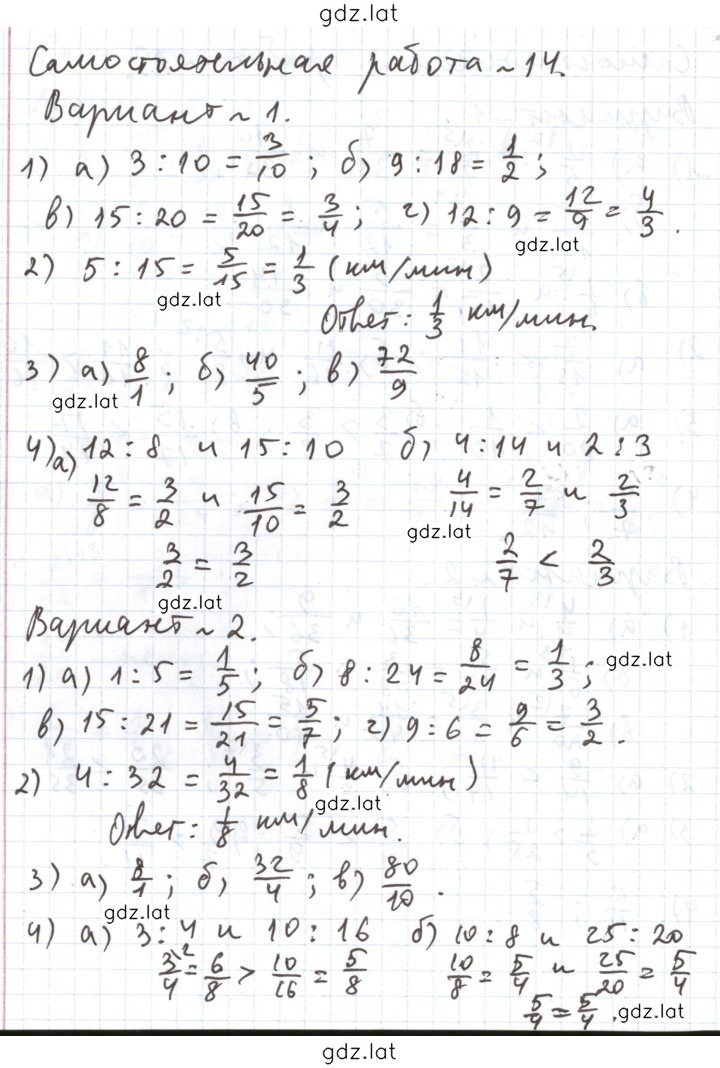 gdz.lat
Самостоятельная работа ~ 14.
Вариант ~ 1.
1) а) 3 : 10 = 3/10 ; б) 9 : 18 = 1/2 ;
в) 15 : 20 = 15/20 = 3/4 ; г) 12 : 9 = 12/9 = 4/3 .
gdz.lat
2) 5 : 15 = 5/15 = 1/3 (км/мин)
gdz.lat
Ответ: 1/3 км/мин.
3) а) 8/1 ; б) 40/5 ; в) 72/9
gdz.lat
4) а) 12 : 8 и 15 : 10 б) 4 : 14 и 2 : 3
12/8 = 3/2 и 15/10 = 3/2 4/14 = 2/7 и 2/3
gdz.lat
3/2 = 3/2 2/7 < 2/3
gdz.lat
Вариант ~ 2.
1) а) 1 : 5 = 1/5 ; б) 8 : 24 = 8/24 = 1/3 ; gdz.lat
в) 15 : 21 = 15/21 = 5/7 ; г) 9 : 6 = 9/6 = 3/2 .
2) 4 : 32 = 4/32 = 1/8 (км/мин)
gdz.lat
Ответ: 1/8 км/мин.
3) а) 8/1 ; б) 32/4 ; в) 80/10 .
gdz.lat
4) а) 3 : 4 и 10 : 16 б) 10 : 8 и 25 : 20
3/4 \2 = 6/8 > 10/16 = 5/8 10/8 = 5/4 и 25/20 = 5/4
5/4 = 5/4 . gdz.lat
gdz.lat